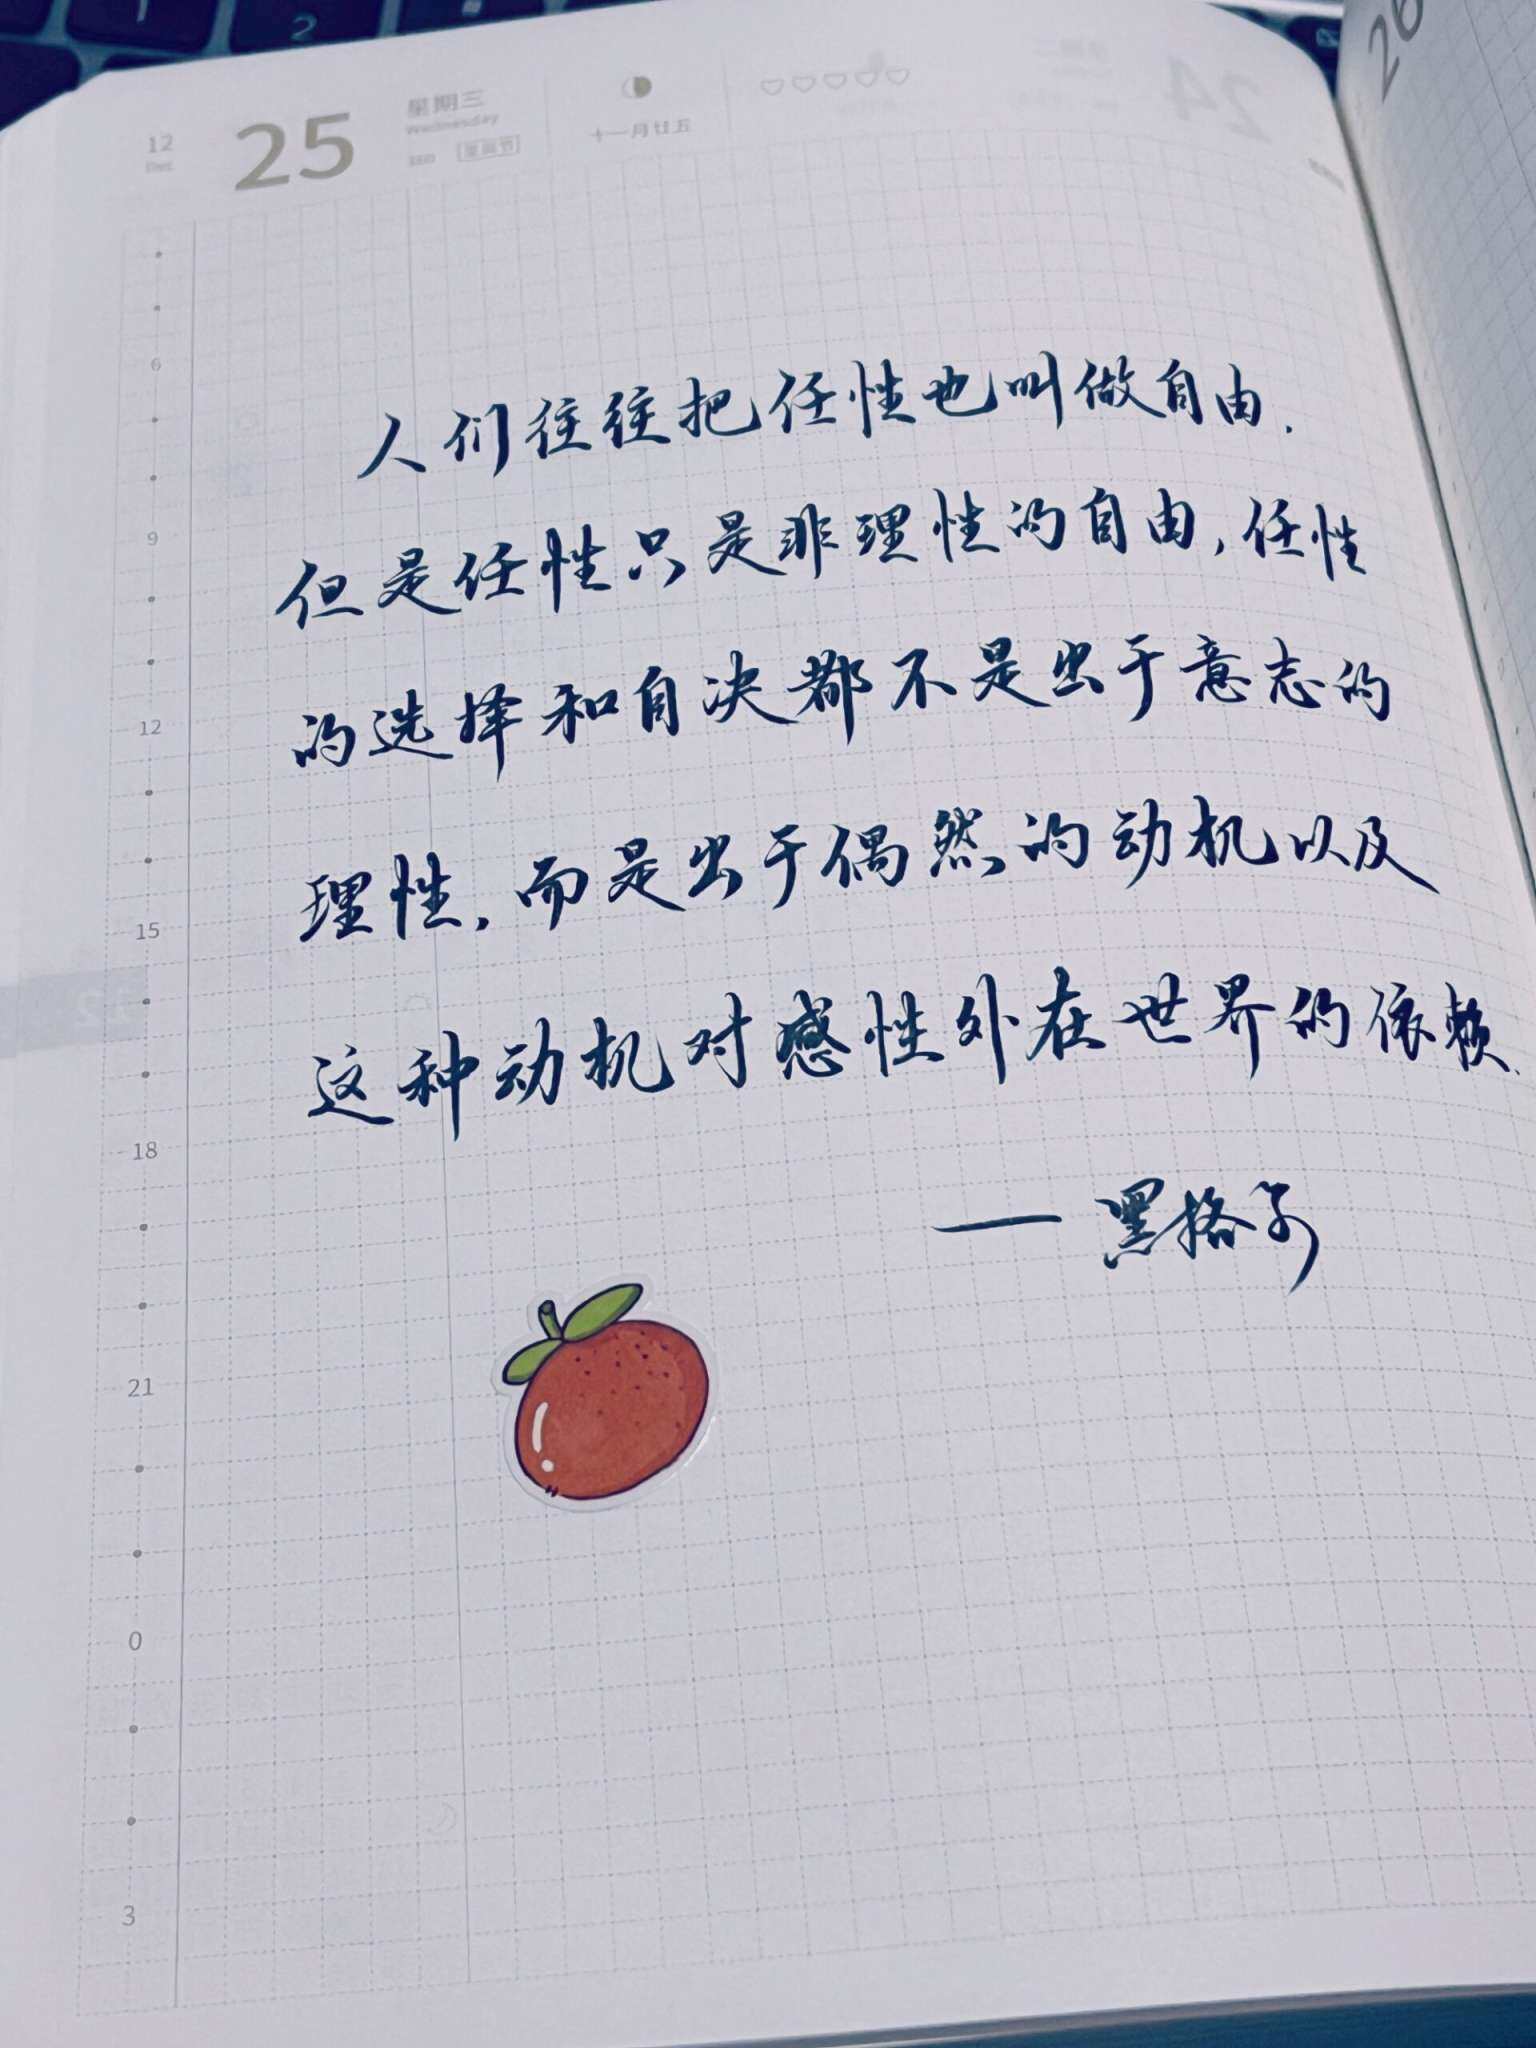 1
2
12
Dec
25
星期三
Wednesday
360
圣诞节
十一月廿五
24
26
6
9
12
15
18
21
0
3
人们往往把任性也叫做自由.
但是任性只是非理性的自由,任性
的选择和自决都不是出于意志的
理性,而是出于偶然的动机以及
这种动机对感性外在世界的依赖.
—— 黑格尔